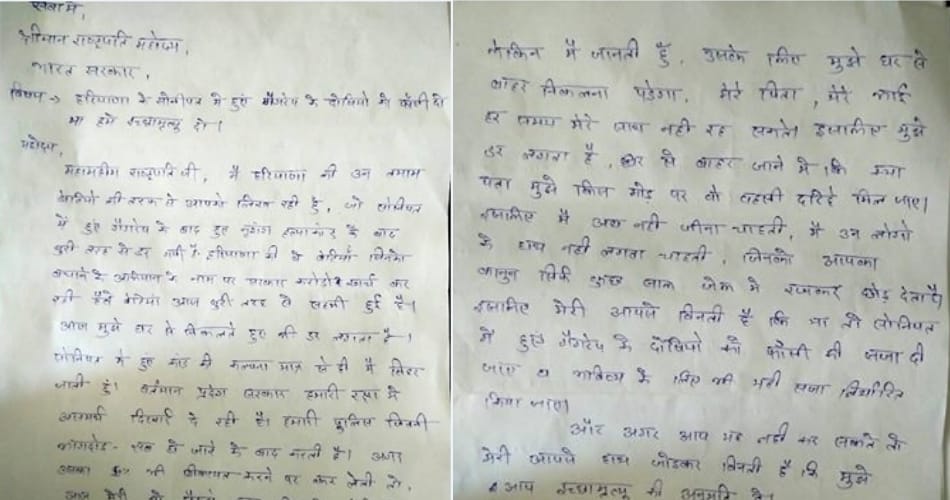 सेवा में,
श्रीमान राष्ट्रपति महोदय,
भारत सरकार,
विषय → हरियाणा के सोनीपत में हुए गैंगरेप के दोषियों को फाँसी दो
या हमें इच्छामृत्यु दो।
महोदय,
महामहीम राष्ट्रपति जी, मैं हरियाणा की उन तमाम
बेटियों की तरफ से आपको लिख रही हूँ, जो सोनीपत
में हुए गैंगरेप के बाद हुए नृशंस हत्याकांड के बाद
बुरी तरह से डर गयी हैं। हरियाणा की वे बेटियाँ जिनको
बचाने के अभियान के नाम पर सरकार करोड़ों खर्च कर
रही है वे बेटियां आज बुरी तरह से सहमी हुई हैं।
आज मुझे घर से निकलते हुए भी डर लगता है।
सोनीपत में हुए कांड की कल्पना मात्र से ही मैं सिहर
जाती हूं। वर्तमान प्रदेश सरकार हमारी रक्षा में
असमर्थ दिखाई दे रही है। हमारी पुलिस जितनी
भागदौड़ - रेप हो जाने के बाद करती है। अगर
उसका भी शिकायत करने पर कर लेती तो,
आज मेरी
लेकिन मैं जानती हूँ, उसके लिए मुझे घर से
बाहर निकलना पड़ेगा, मेरे पिता, मेरे भाई
हर समय मेरे साथ नहीं रह सकते। इसलिए मुझे
डर लगता है, घर से बाहर जाने में कि क्या
पता मुझे किस मोड़ पर वो वहशी दरिंदे मिल जाए।
इसलिए मैं अब नहीं जीना चाहती, मैं उन लोगों
के हाथ नहीं लगना चाहती, जिनको आपका
कानून सिर्फ कुछ साल जेल में रखकर छोड़ देता है।
इसलिए मेरी आपसे विनती है कि या तो सोनीपत
में हुए गैंगरेप के दोषियों को फाँसी की सजा दी
जाए व भविष्य के लिए भी यही सजा निर्धारित
किया जाए।
और अगर आप यह नहीं कर सकते तो
मेरी आपसे हाथ जोड़कर विनती है कि मुझे
आप इच्छामृत्यु की अनुमति दें।